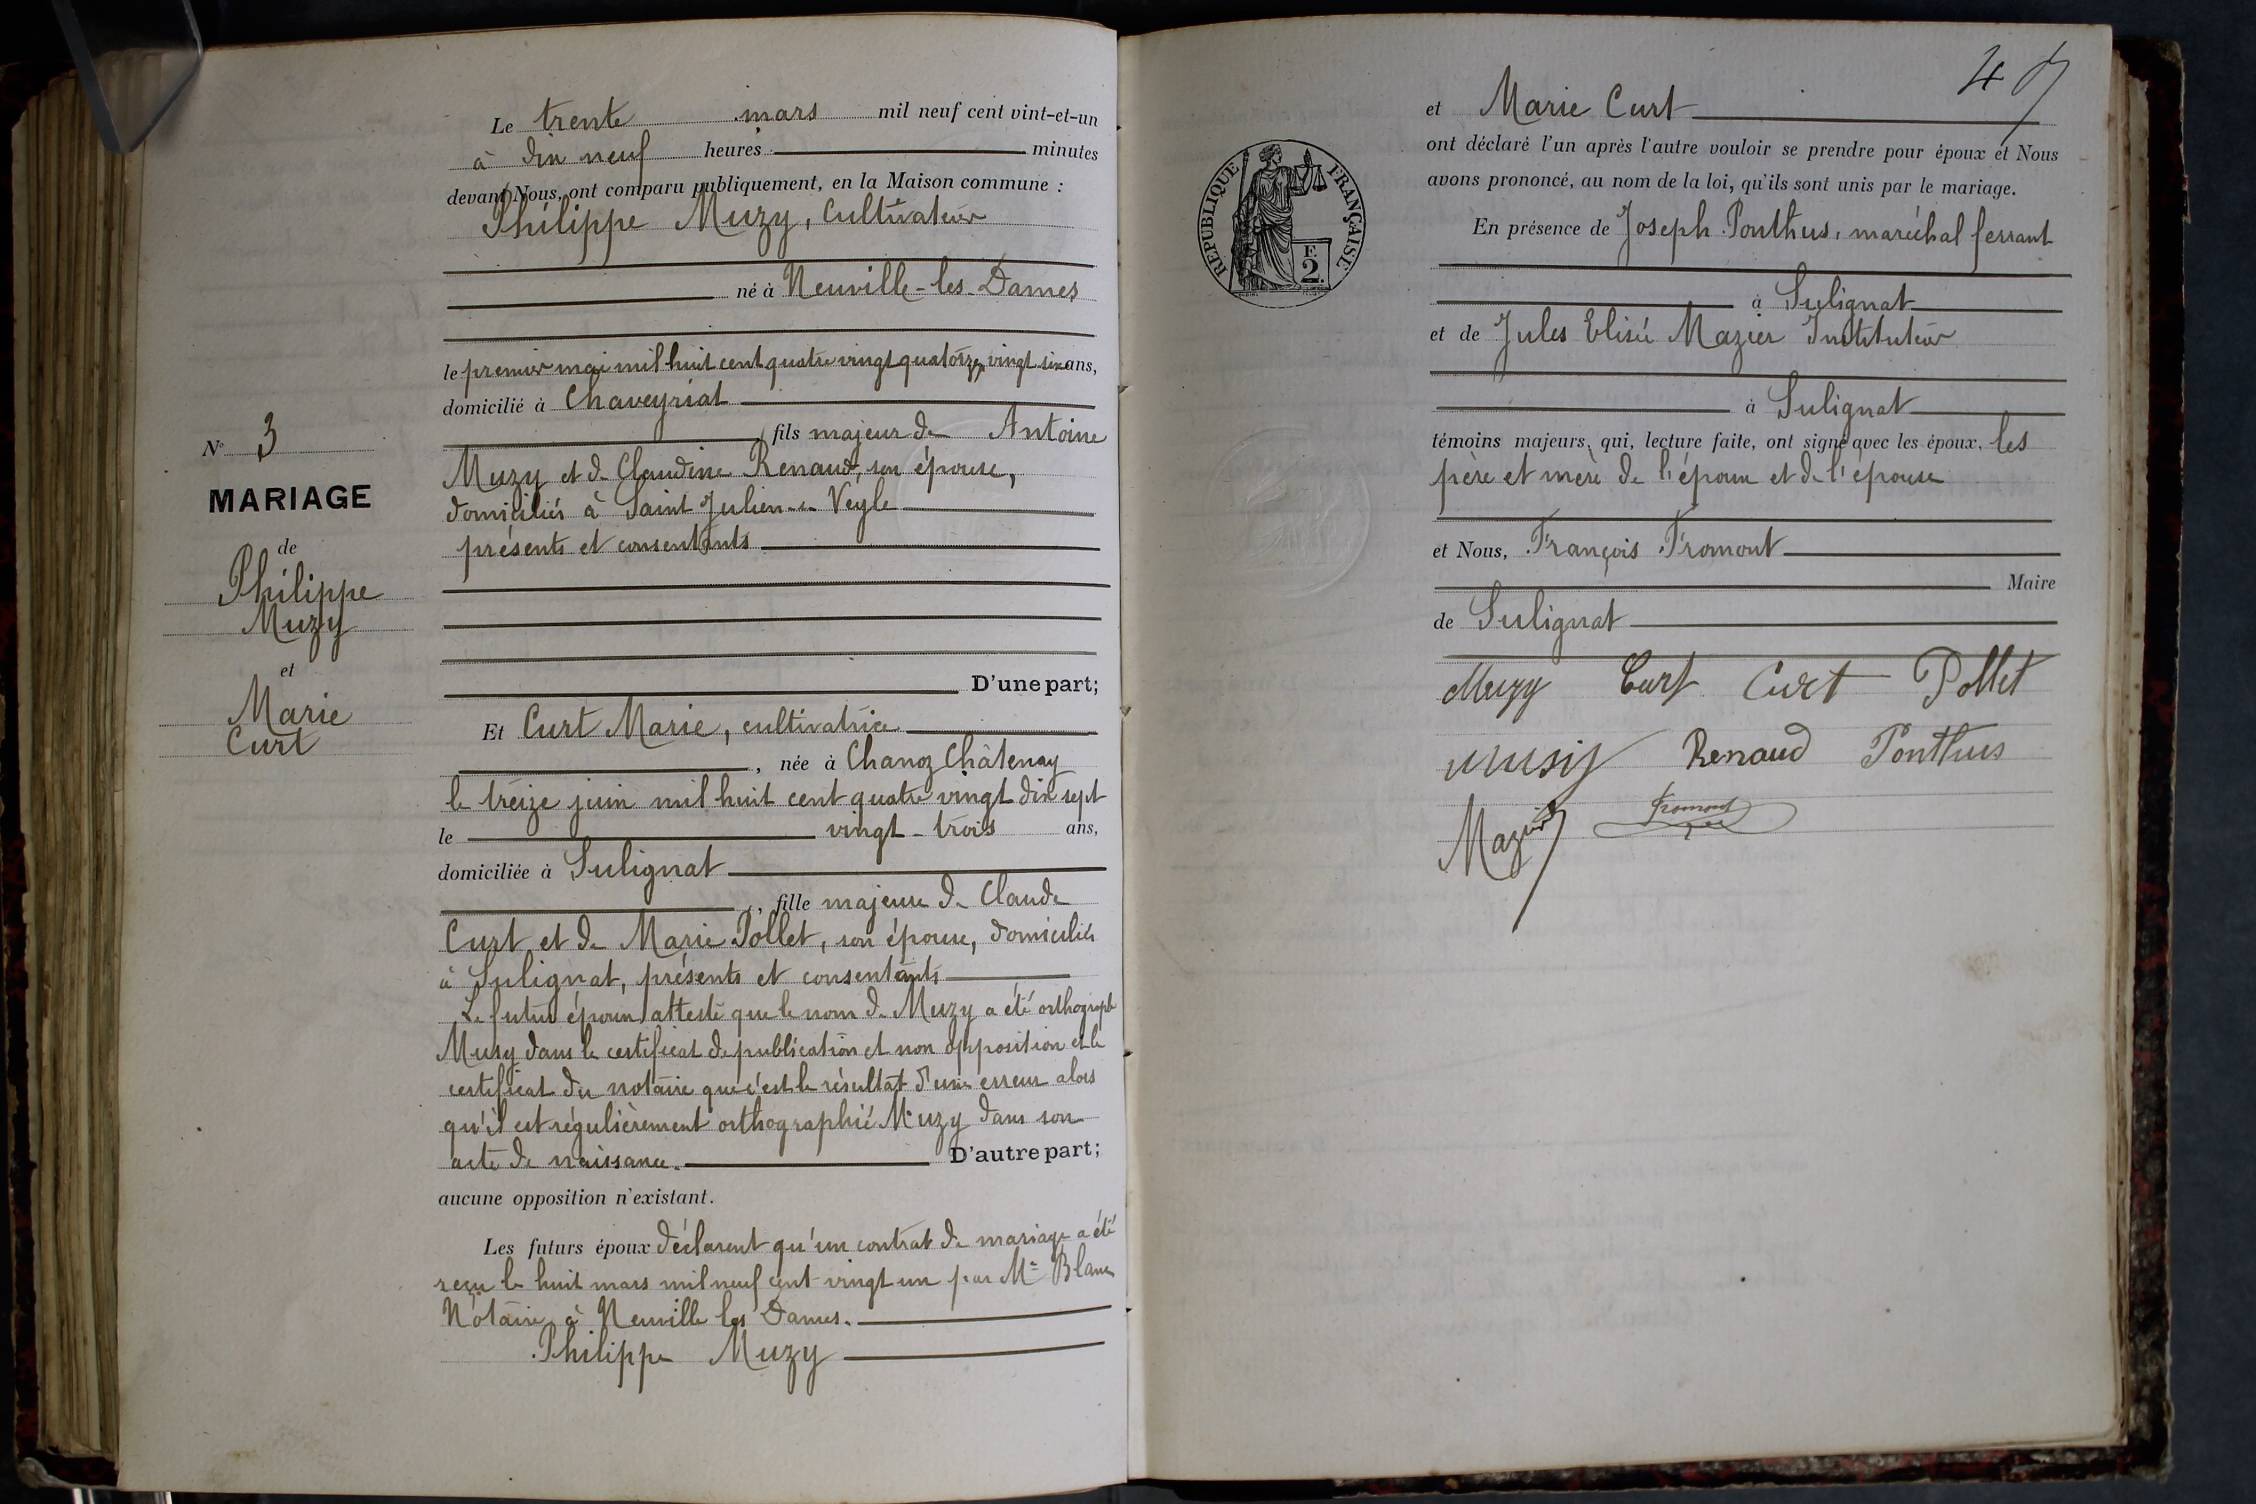 Le trente mars mil neuf cent vint-et-un
à dix neuf heures minutes
devant Nous, ont comparu publiquement, en la Maison commune :
Philippe Muzy, cultivateur
né à Neuville-les-Dames
le premier mai mil huit cent quatre vingt quatorze, vingt six ans,
domicilié à Chaveyriat
fils majeur de Antoine
Muzy et de Claudine Renaud, son épouse,
domiciliés à Saint Julien-s-Veyle
présents et consentants
D'une part;
Et Curt Marie, cultivatrice
, née à Chanoz Châtenay
le treize juin mil huit cent quatre vingt dix sept
le vingt-trois ans,
domiciliée à Sulignat
, fille majeure de Claude
Curt et de Marie Pollet, son épouse, domiciliés
à Sulignat, présents et consentants
Le futur époux atteste que le nom de Muzy a été orthographié
Musy dans le certificat de publication et non opposition et le
certificat du notaire que c'est le résultat d'une erreur alors
qu'il est régulièrement orthographié Muzy dans son
acte de naissance. D'autre part;
aucune opposition n'existant.
Les futurs époux déclarent qu'un contrat de mariage a été
reçu le huit mars mil neuf cent vingt un par Me Blanc
Notaire à Neuville les Dames.
Philippe Muzy
No 3
MARIAGE
de
Philippe
Muzy
et
Marie
Curt
et Marie Curt
ont déclaré l'un après l'autre vouloir se prendre pour époux et Nous
avons prononcé, au nom de la loi, qu'ils sont unis par le mariage.
En présence de Joseph Ponthus, maréchal ferrant
à Sulignat
et de Jules Elisée Mazier Instituteur
à Sulignat
témoins majeurs, qui, lecture faite, ont signé avec les époux, les
père et mère de l'époux et de l'épouse
et Nous, François Fromont
Maire
de Sulignat
Muzy Curt Curt Pollet
Musiy Renaud Ponthus
Mazier Fromont
RÉPUBLIQUE FRANÇAISE
E
2